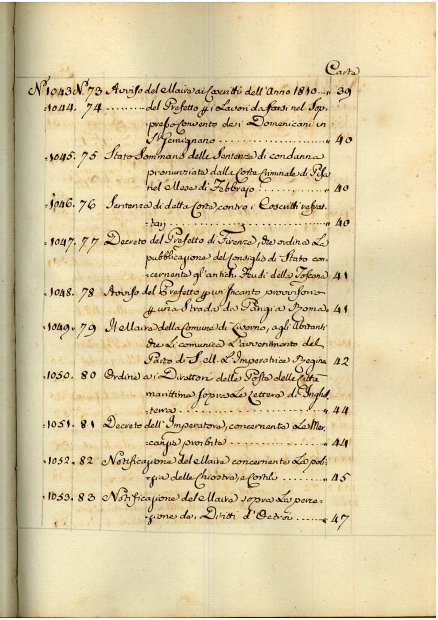 Carte
N.º 1043. N.º 73 Avviso del Maire ai Coscritti dell'Anno 1810 ... 39
1044. 74 ......... del Prefetto p i Lavori da farsi nel sop-
presso Convento dei Domenicani in
S. Gemignano ......... 40
1045. 75 Stato Sommario delle Sentenze di condanna
pronunziate dalla Corte Criminale di Pisa
nel Mese di Febbrajo ......... 40
1046. 76 Sentenza di detta Corte contro i Coscritti refrat-
tarj ......... 40
1047. 77 Decreto del Prefetto di Firenze, che ordina La
pubblicazione del Consiglio di Stato con-
cernente gl'antichi Feudi della Toscana 41
1048. 78 Avviso del Prefetto p un Incanto provvisorio
p una Strada da Parigi a Roma .. 41
1049. 79 Il Maire della Comune di Livorno, agli Abitanti
che Li comunica L'avvenimento del
Parto di S. M. L'Imperatrice Regina 42
1050. 80 Ordine ai Direttori delle Poste delle Città
marittime sopra Le Lettere di Inghil-
terra ......... 44
1051. 81 Decreto dell'Imperatore, concernente Le Mer-
canzie proibite ......... 44
1052. 82 Notificazione del Maire concernente La puli-
zia delle Chiostre, e Cortili ......... 45
1053. 83 Notificazione del Maire sopra La perce-
zione dei Diritti d'Octroi ......... 47